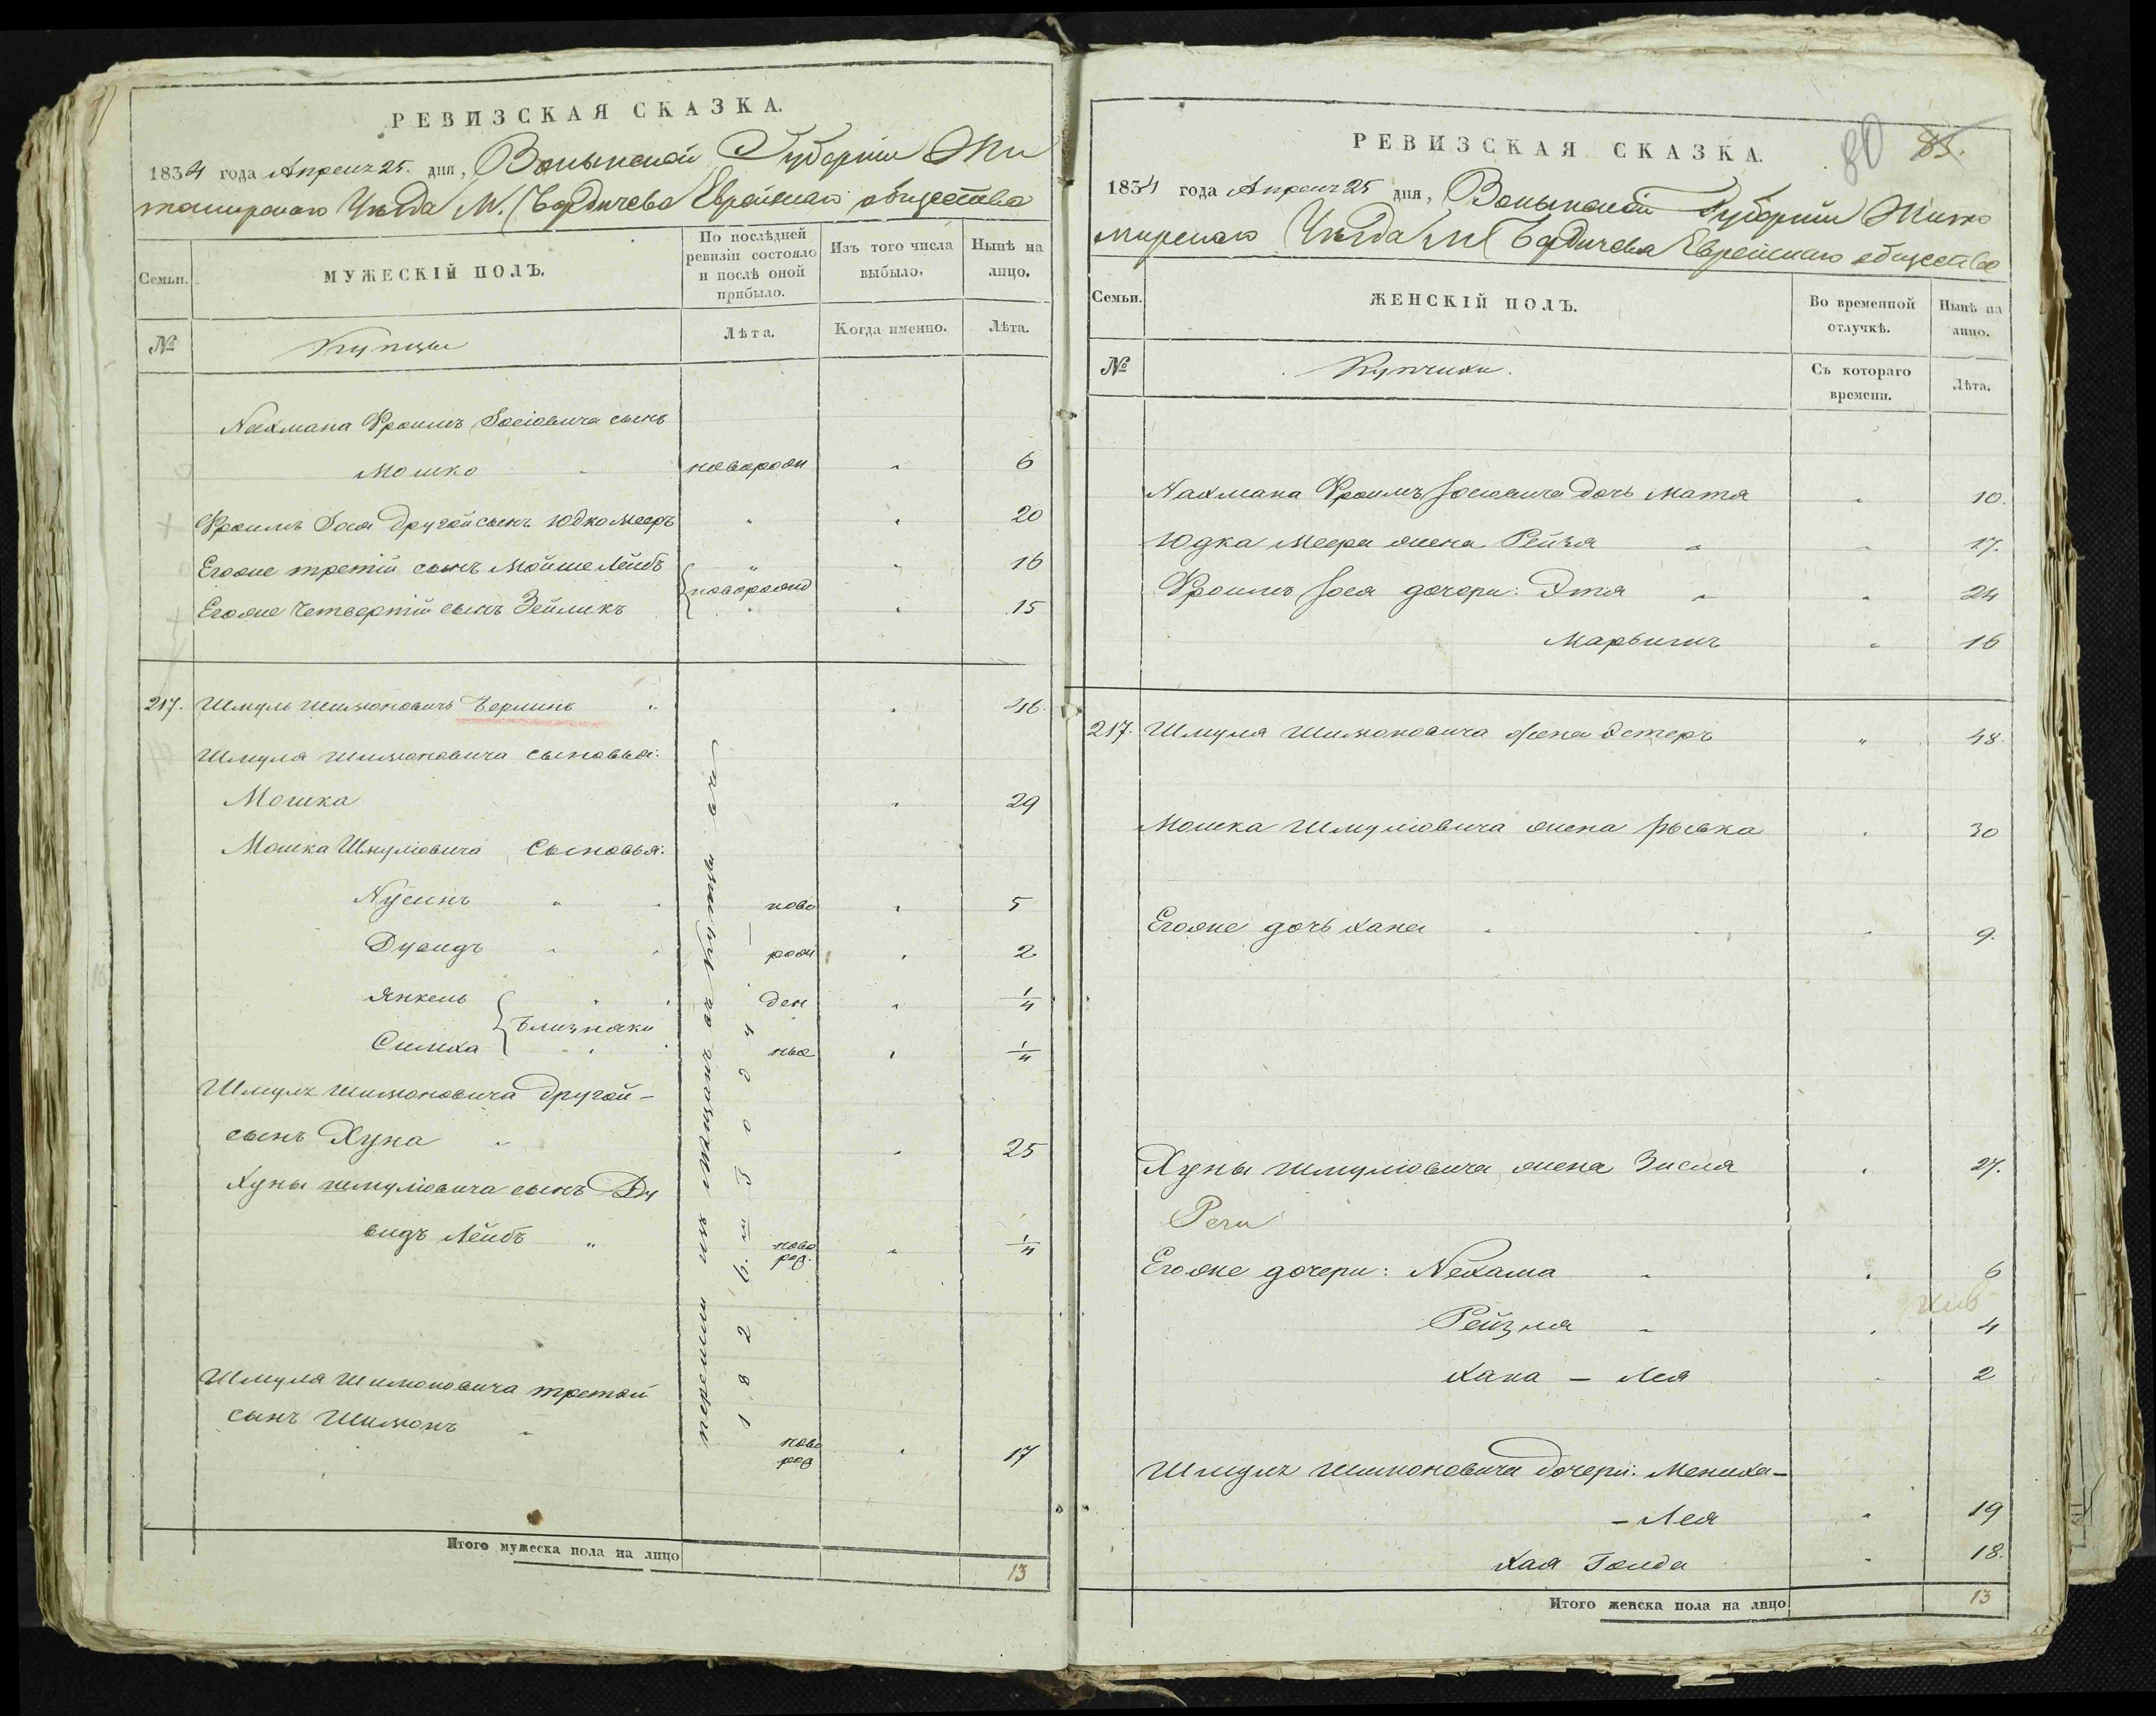 РЕВИЗСКАЯ СКАЗКА.
1834 года Апреля 25. дня, Волынской Губерніи Жи
томирскаго Уѣзда М. Бердичева Еврейскаго общества
Семьи.
МУЖЕСКІЙ ПОЛЪ.
По послѣдней
ревизіи состояло
и послѣ оной
прибыло.
Изъ того числа
выбыло.
Нынѣ на
лицо.
№
Купцы
Лѣта.
Когда именно.
Лѣта.
Нахмана Фроимъ Іосіовича сынъ
Мошко новорожд 6
Фроимъ Іося другой сынъ Юдко Мееръ " 20
Егоже третій сынъ Мойше Лейбъ " 16
новорожд
Егоже четвертій сынъ Зейликъ " 15
217. Шмуль Шимоновичъ Берлинъ " 46.
Шмуля Шимоновича сыновья:
Мошка 29
Мошка Шмуліовича Сыновья:
Нусинъ ново 5
Дувидъ рож 2
Янкель ден 1/4
близняки
Симха ные 1/4
Шмуля Шимоновича другой –
сынъ Хуна 25
Хуны Шмуліовича сынъ Ду
видъ Лейбъ " ново
род. 1/4
Шмуля Шимоновича третій
сынъ Шимонъ ново
род 17
изъ мещанъ въ купцы
1826. м Году
Итого мужеска пола на лицо 13
80 85.
РЕВИЗСКАЯ СКАЗКА.
1834 года Апреля 25 дня, Волынской Губерніи Жито
мирскаго Уѣзда М Бердичева Еврейскаго общества
Семьи.
ЖЕНСКІЙ ПОЛЪ.
Во временной
отлучкѣ.
Нынѣ на
лицо.
№
Купчихи.
Съ котораго
времени.
Лѣта.
Нахмана Фроимъ Іосіовича дочь Матя 10.
Юдка Меера жена Рейзя 17.
Фроимъ Іося дочери: Этя 24
Марьимъ 16
217. Шмуля Шимоновича жена Эстеръ " 48.
Мошка Шмуліовича жена Рывка 30
Егоже дочь Хана 9.
Хуны Шмуліовича жена Зисля 27.
Егоже дочери: Нехама 6
Рейзля 4
Хана – Лея 2
Шмуля Шимоновича дочери: Мениха –
– Лея 19
Хая Голда 18.
Итого женска пола на лицо 13